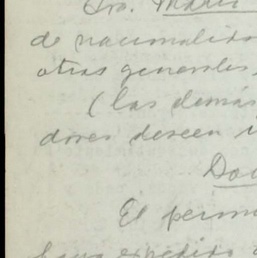 Sra. Marie
de nacionalida
otras generales,
(las demás
dores deseen i
Do
El perm
haya expedido